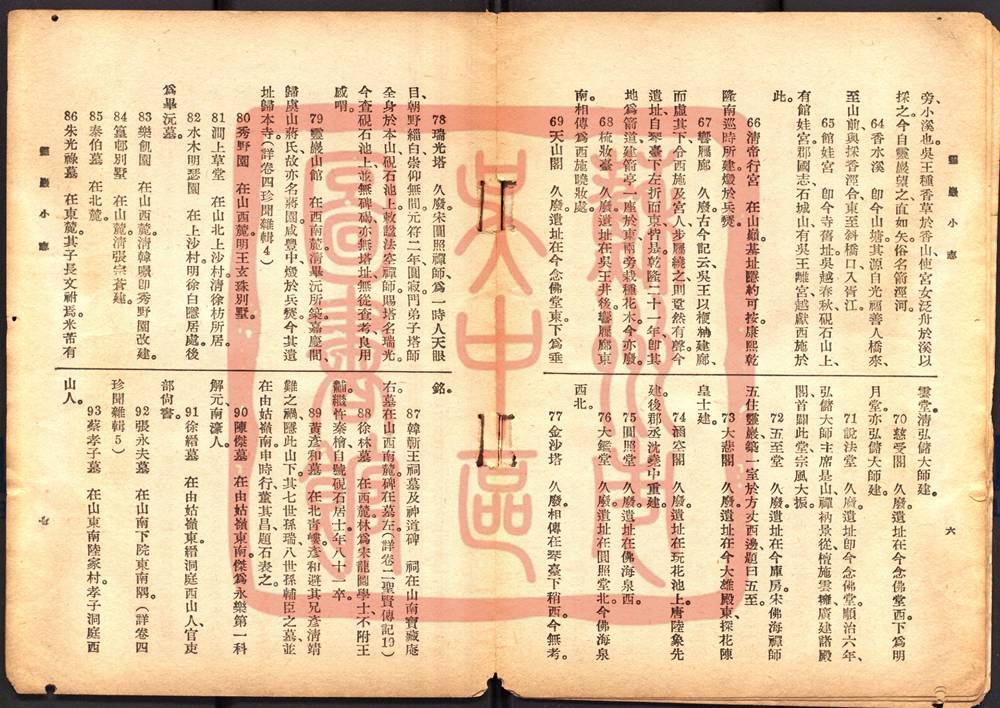 靈巖小志
六
旁小溪也吳王種香草於香山使宮女泛舟於溪以
採之今自靈巖望之直如矢俗名箭涇河。
64香水溪 卽今山塘其源自光福善人橋來、
至山前與採香涇合東至斜橋口入胥江。
65館娃宮 卽今寺舊址吳越春秋硯石山上、
有館娃宮郡國志石城山有吳王離宮越獻西施於
此。
66淸帝行宮 在山巔基址隱約可按康熙乾
隆南巡時所建燬於兵燹。
67響屧廊 久廢古今記云吳王以楩枏建廊、
而虛其下令西施及宮人步屧繞之則跫然有聲今
遺址自琴臺下左折而東皆是乾隆二十一年卽其
地爲箭道建箭亭一座於東兩旁栽種花木今亦廢。
68梳妝臺 久廢遺址在吳王井後響屧廊東
南相傳爲西施曉妝處。
69天山閣 久廢遺址在今念佛堂東下爲垂
雲堂淸弘儲大師建。
70慈受閣 久廢遺址在今念佛堂西下爲明
月堂亦弘儲大師建。
71說法堂 久廢遺址卽今念佛堂順治六年、
弘儲大師主席是山禪衲景從檀施雲臻廣建諸殿
閣首闢此堂宗風大振
72五至堂 久廢遺址在今庫房宋佛海禪師
五住靈巖築一室於方丈西邊題曰五至。
73大悲閣 久廢遺址在今大雄殿東探花陳
皇士建。
74涵空閣 久廢遺址在玩花池上唐陸象先
建後郡丞沈堯中重建
75圓照堂 久廢遺址在佛海泉西。
76大鑑堂 久廢遺址在圓照堂北今佛海泉
西北。
77金沙塔 久廢相傳在琴臺下稍西今無考。
78瑞光塔 久廢宋圓照禪師爲一時人天眼
目朝野緇白崇仰無間元符二年圓寂門弟子塔師
全身於本山硯石池上敕諡法空禪師賜塔名瑞光
今查硯石池上並無碑碣亦無塔址無從查考良用
感喟。
79靈巖山館 在西南麓淸畢沅所築嘉慶間
歸虞山蔣氏故亦名蔣園咸豐中燬於兵燹今其遺
址歸本寺。(詳卷四珍聞雜輯4)
80秀野園 在山西麓明王玄珠別墅。
81澗上草堂 在山北上沙村淸徐枋所居。
82水木明瑟園 在上沙村明徐白隱居處後
爲畢沅墓。
83樂飢園 在山西麓淸韓璟卽秀野園改建。
84篁邨別墅 在山麓淸張宗蒼建。
85泰伯墓 在北麓。
86朱光祿墓 在東麓其子長文祔焉米芾有
銘。
87韓蘄王祠墓及神道碑 祠在山南寶藏庵
右墓在山西南麓碑在墓左(詳卷二聖賢傳記19)
88徐林墓 在西麓林爲宋龍圖學士不附王
黼繼忤秦檜自號硯石居士年八十一卒
89黃彥和墓 在北青嶁彥和避其兄彥淸靖
難之禍隱此山下其七世孫瑞八世孫輔臣之墓並
在由姑嶺南申時行董其昌題石表之。
90陳傑墓 在由姑嶺東南傑爲永樂第一科
解元南濠人。
91徐縉墓 在由姑嶺東縉洞庭西山人官吏
部尙書。
92張永夫墓 在山南下院東南隅。(詳卷四
珍聞雜輯5)
93蔡孝子墓 在山東南陸家村孝子洞庭西
山人。
靈巖小志
七